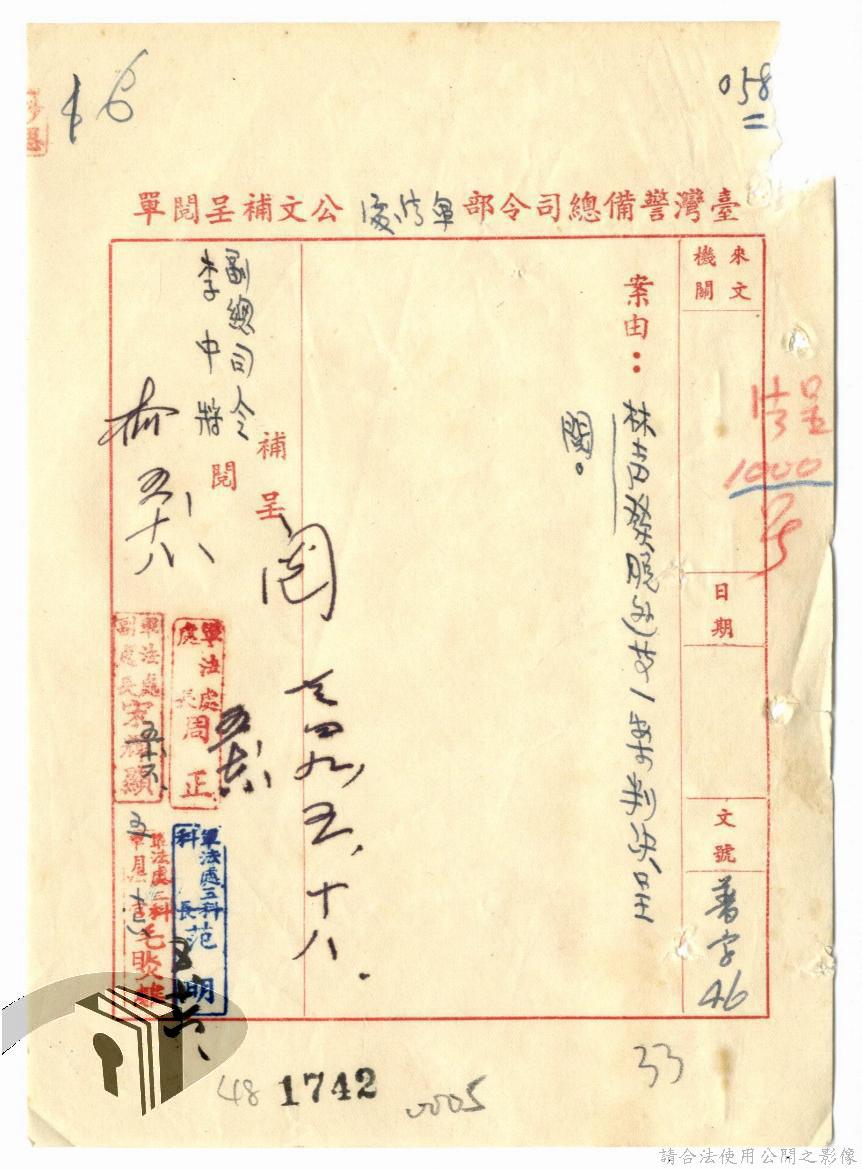 16
058
臺灣警備總司令部軍法處公文補呈閱單
來文機關
呈
1000
號
日期
文號
普字46
案由：林吉發脫逃等一案判決呈
閱。
補呈
副總司令
李中將
閱
閱
四九,五,十八.
五
十八
軍法處處長周正
軍法處副處長宋膺顯
軍法處三科科長范明
軍法處三科
毛
33
48
1742
0005
請合法使用公開之影像